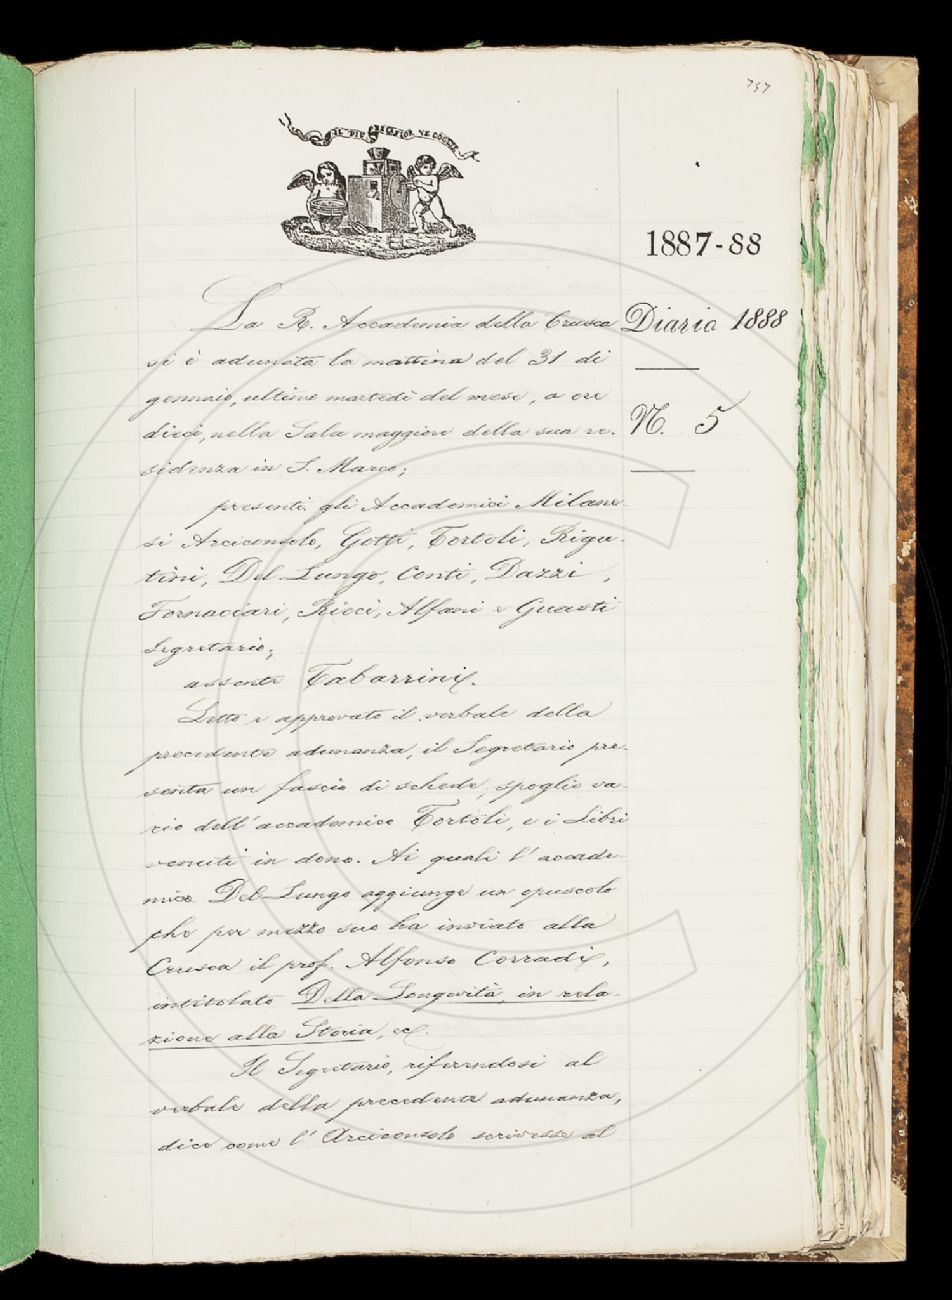 757
IL PIÙ BEL FIOR NE COGLIE
1887-88
Diario 1888
N. 5
La R. Accademia della Crusca
si è adunata la mattina del 31 di
gennaio, ultimo martedì del mese, a ore
dieci, nella Sala maggiore della sua re-
sidenza in S. Marco;
presenti gli Accademici Milane-
si Arciconsolo, Gotti, Tortoli, Rigu-
tini, Del Lungo, Conti, Dazzi,
Fornaciari, Ricci, Alfani e Guasti
Segretario;
assente Tabarrini.
Letto e approvato il verbale della
precedente adunanza, il Segretario pre-
senta un fascio di schede, spoglio va-
rio dell'accademico Tortoli, e i Libri
venuti in dono. Ai quali l'accade-
mico Del Lungo aggiunge un opuscolo
che per mezzo suo ha inviato alla
Crusca il prof. Alfonso Corradi,
intitolato Della Longevità, in rela-
zione alla Storia, ec.
Il Segretario, riferendosi al
verbale della precedente adunanza,
dice come l'Arciconsolo scrivesse al